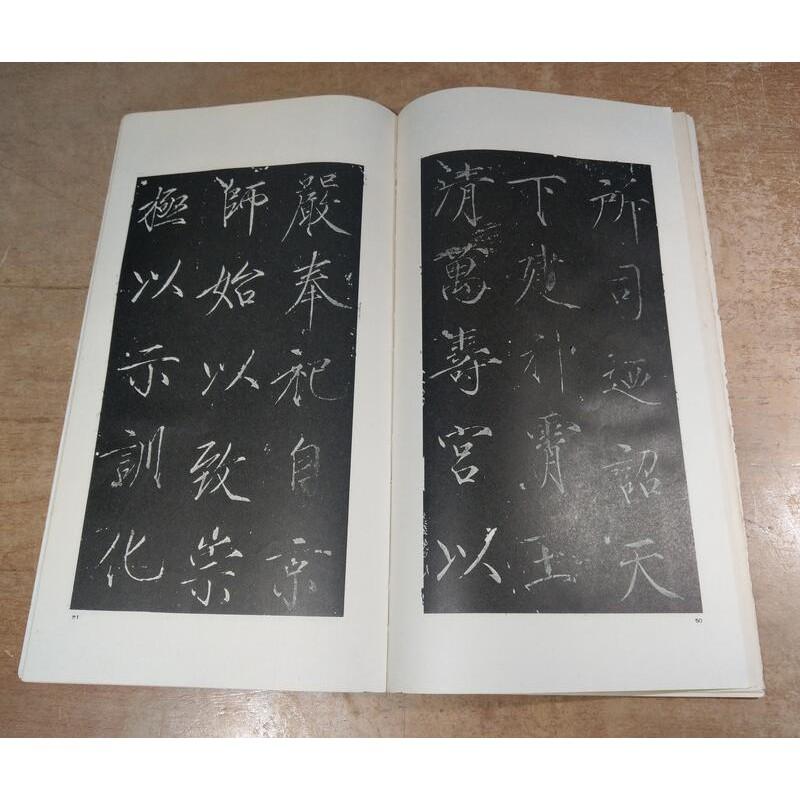 所司迺詔天
下建神霄玉
清萬壽宮以
50
嚴奉祀自京
師始以致崇
極以示訓化
51